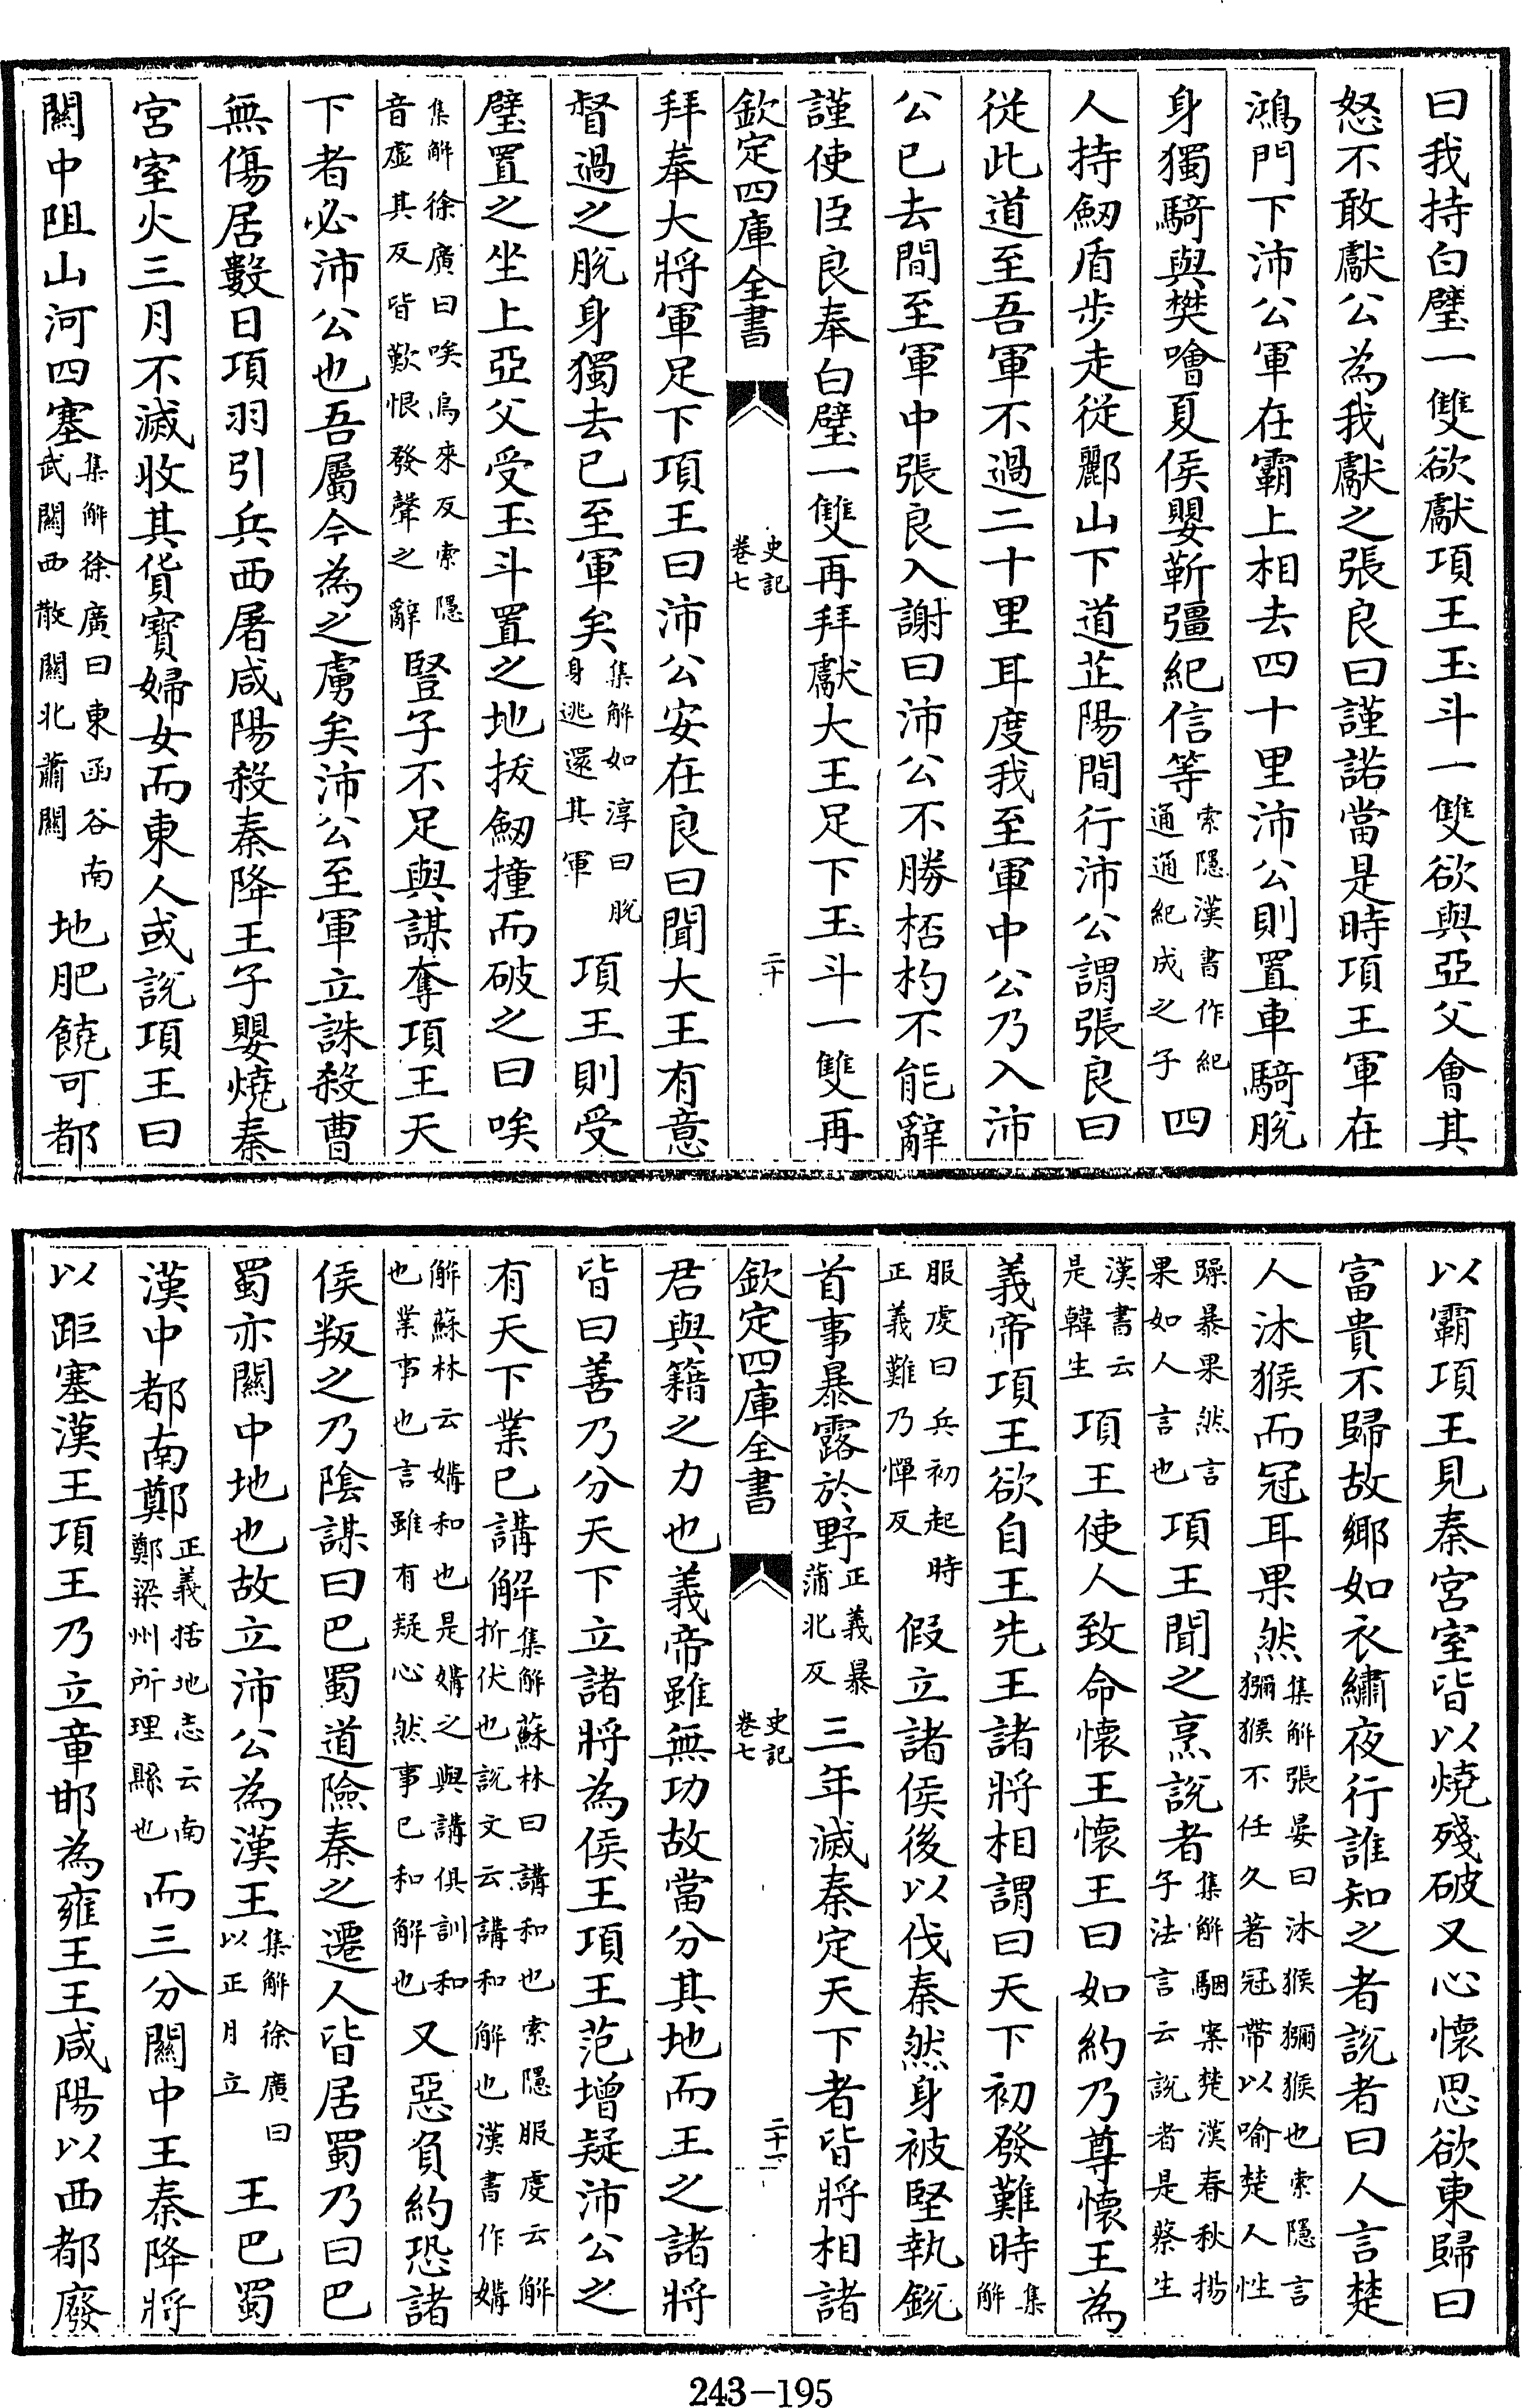 曰我持白璧一雙欲獻項王玉斗一雙欲與亞父會其
怒不敢獻公為我獻之張良曰謹諾當是時項王軍在
鴻門下沛公軍在霸上相去四十里沛公則置車騎脫
身獨騎與樊噲夏侯嬰靳彊紀信等索隱漢書作紀通通紀成之子四
人持劒盾步走從酈山下道芷陽間行沛公謂張良曰
從此道至吾軍不過二十里耳度我至軍中公乃入沛
公已去間至軍中張良入謝曰沛公不勝桮杓不能辭
謹使臣良奉白璧一雙再拜獻大王足下玉斗一雙再
欽定四庫全書 史記卷七 二十
拜奉大將軍足下項王曰沛公安在良曰聞大王有意
督過之脫身獨去已至軍矣集解如淳曰脫身逃還其軍項王則受
璧置之坐上亞父受玉斗置之地拔劒撞而破之曰唉
集解徐廣曰唉烏來反索隱音虛其反皆歎恨發聲之辭豎子不足與謀奪項王天
下者必沛公也吾屬今為之虜矣沛公至軍立誅殺曹
無傷居數日項羽引兵西屠咸陽殺秦降王子嬰燒秦
宮室火三月不滅收其貨寳婦女而東人或說項王曰
關中阻山河四塞集解徐廣曰東函谷南武關西散關北蕭關地肥饒可都
以霸項王見秦宮室皆以燒殘破又心懷思欲東歸曰
富貴不歸故鄉如衣繡夜行誰知之者說者曰人言楚
人沐猴而冠耳果然集解張晏曰沐猴獼猴也索隱言獼猴不任久著冠帶以喻楚人性
躁暴果然言果如人言也項王聞之烹說者集解駰案楚漢春秋揚子法言云說者是蔡生
漢書云是韓生項王使人致命懷王懷王曰如約乃尊懷王為
義帝項王欲自王先王諸將相謂曰天下初發難時集解
服虔曰兵初起時正義難乃憚反假立諸侯後以伐秦然身被堅執銳
首事暴露於野正義暴蒲北反三年滅秦定天下者皆將相諸
欽定四庫全書 史記卷七 二十一
君與籍之力也義帝雖無功故當分其地而王之諸將
皆曰善乃分天下立諸將為侯王項王范增疑沛公之
有天下業已講解集解蘇林曰講和也索隱服虔云解折伏也說文云講和解也漢書作媾
解蘇林云媾和也是媾之與講俱訓和也業事也言雖有疑心然事已和解也又惡負約恐諸
侯叛之乃陰謀曰巴蜀道險秦之遷人皆居蜀乃曰巴
蜀亦關中地也故立沛公為漢王集解徐廣曰以正月立王巴蜀
漢中都南鄭正義括地志云南鄭梁州所理縣也而三分關中王秦降將
以距塞漢王項王乃立章邯為雍王王咸陽以西都廢
243-195